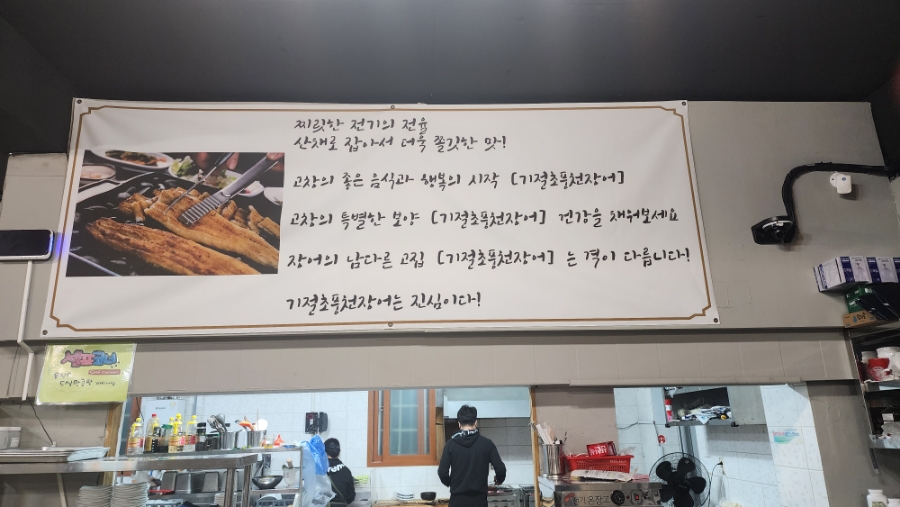 찌릿한 전기의 전율
산채로 잡아서 더욱 쫄깃한 맛!
고창의 좋은 음식과 행복의 시작 [기절초풍천장어]
고창의 특별한 보양 [기절초풍천장어] 건강을 채워보세요
장어의 남다른 고집 [기절초풍천장어] 는 격이 다릅니다!
기절초풍천장어는 진심이다!
셀프코너